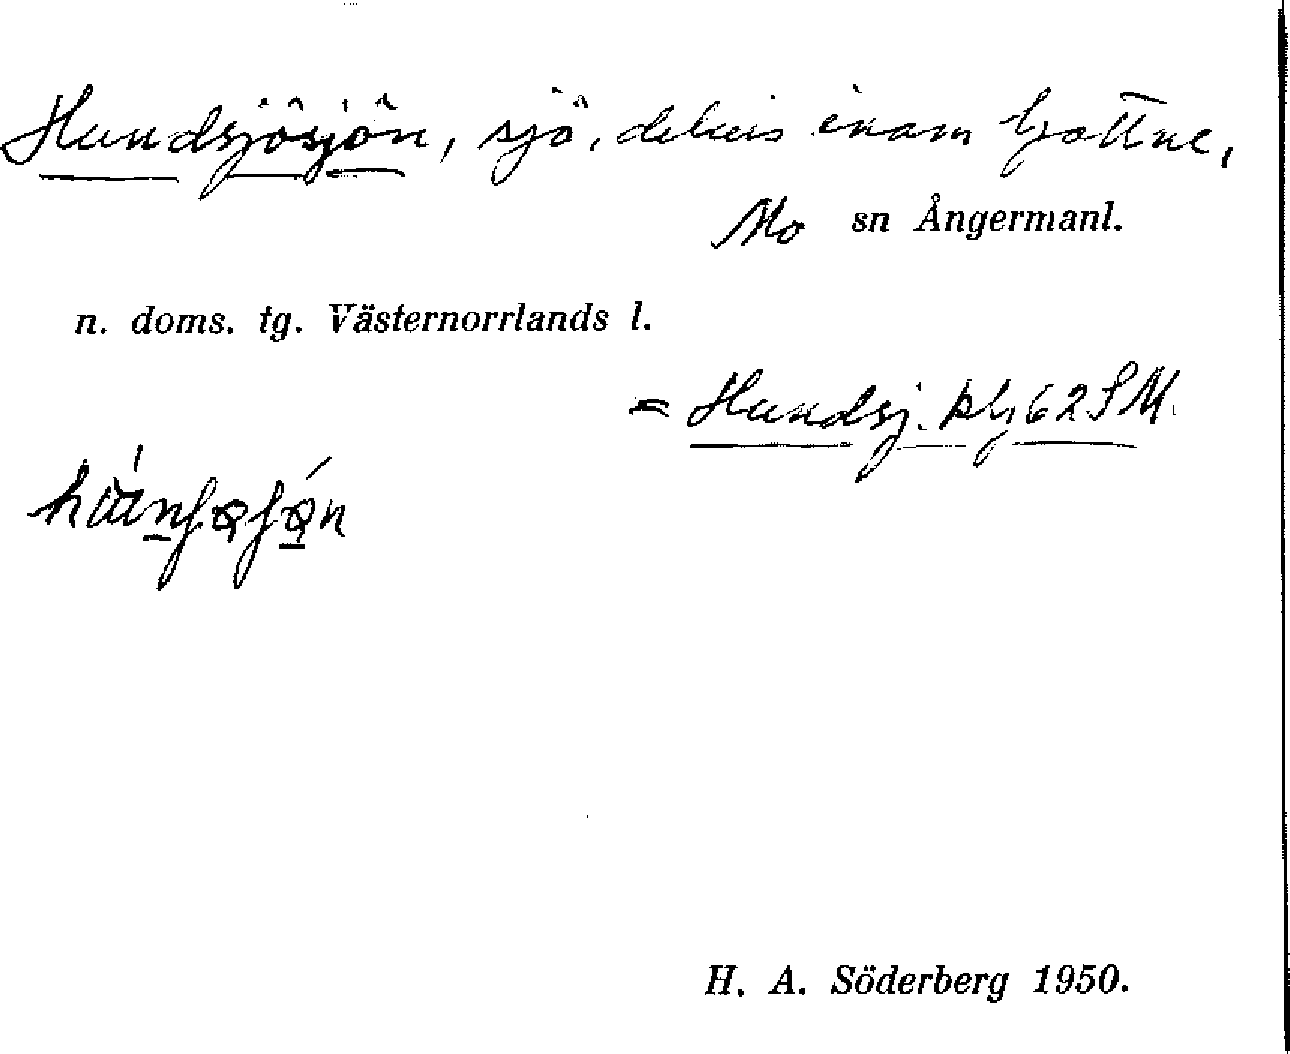 Hundsjösjön, sjö, delvis inom Gottne,
Mo sn Ångermanl.
n. doms. tg. Västernorrlands l.
= Hundsj. blg 62 SM
H. A. Söderberg 1950.